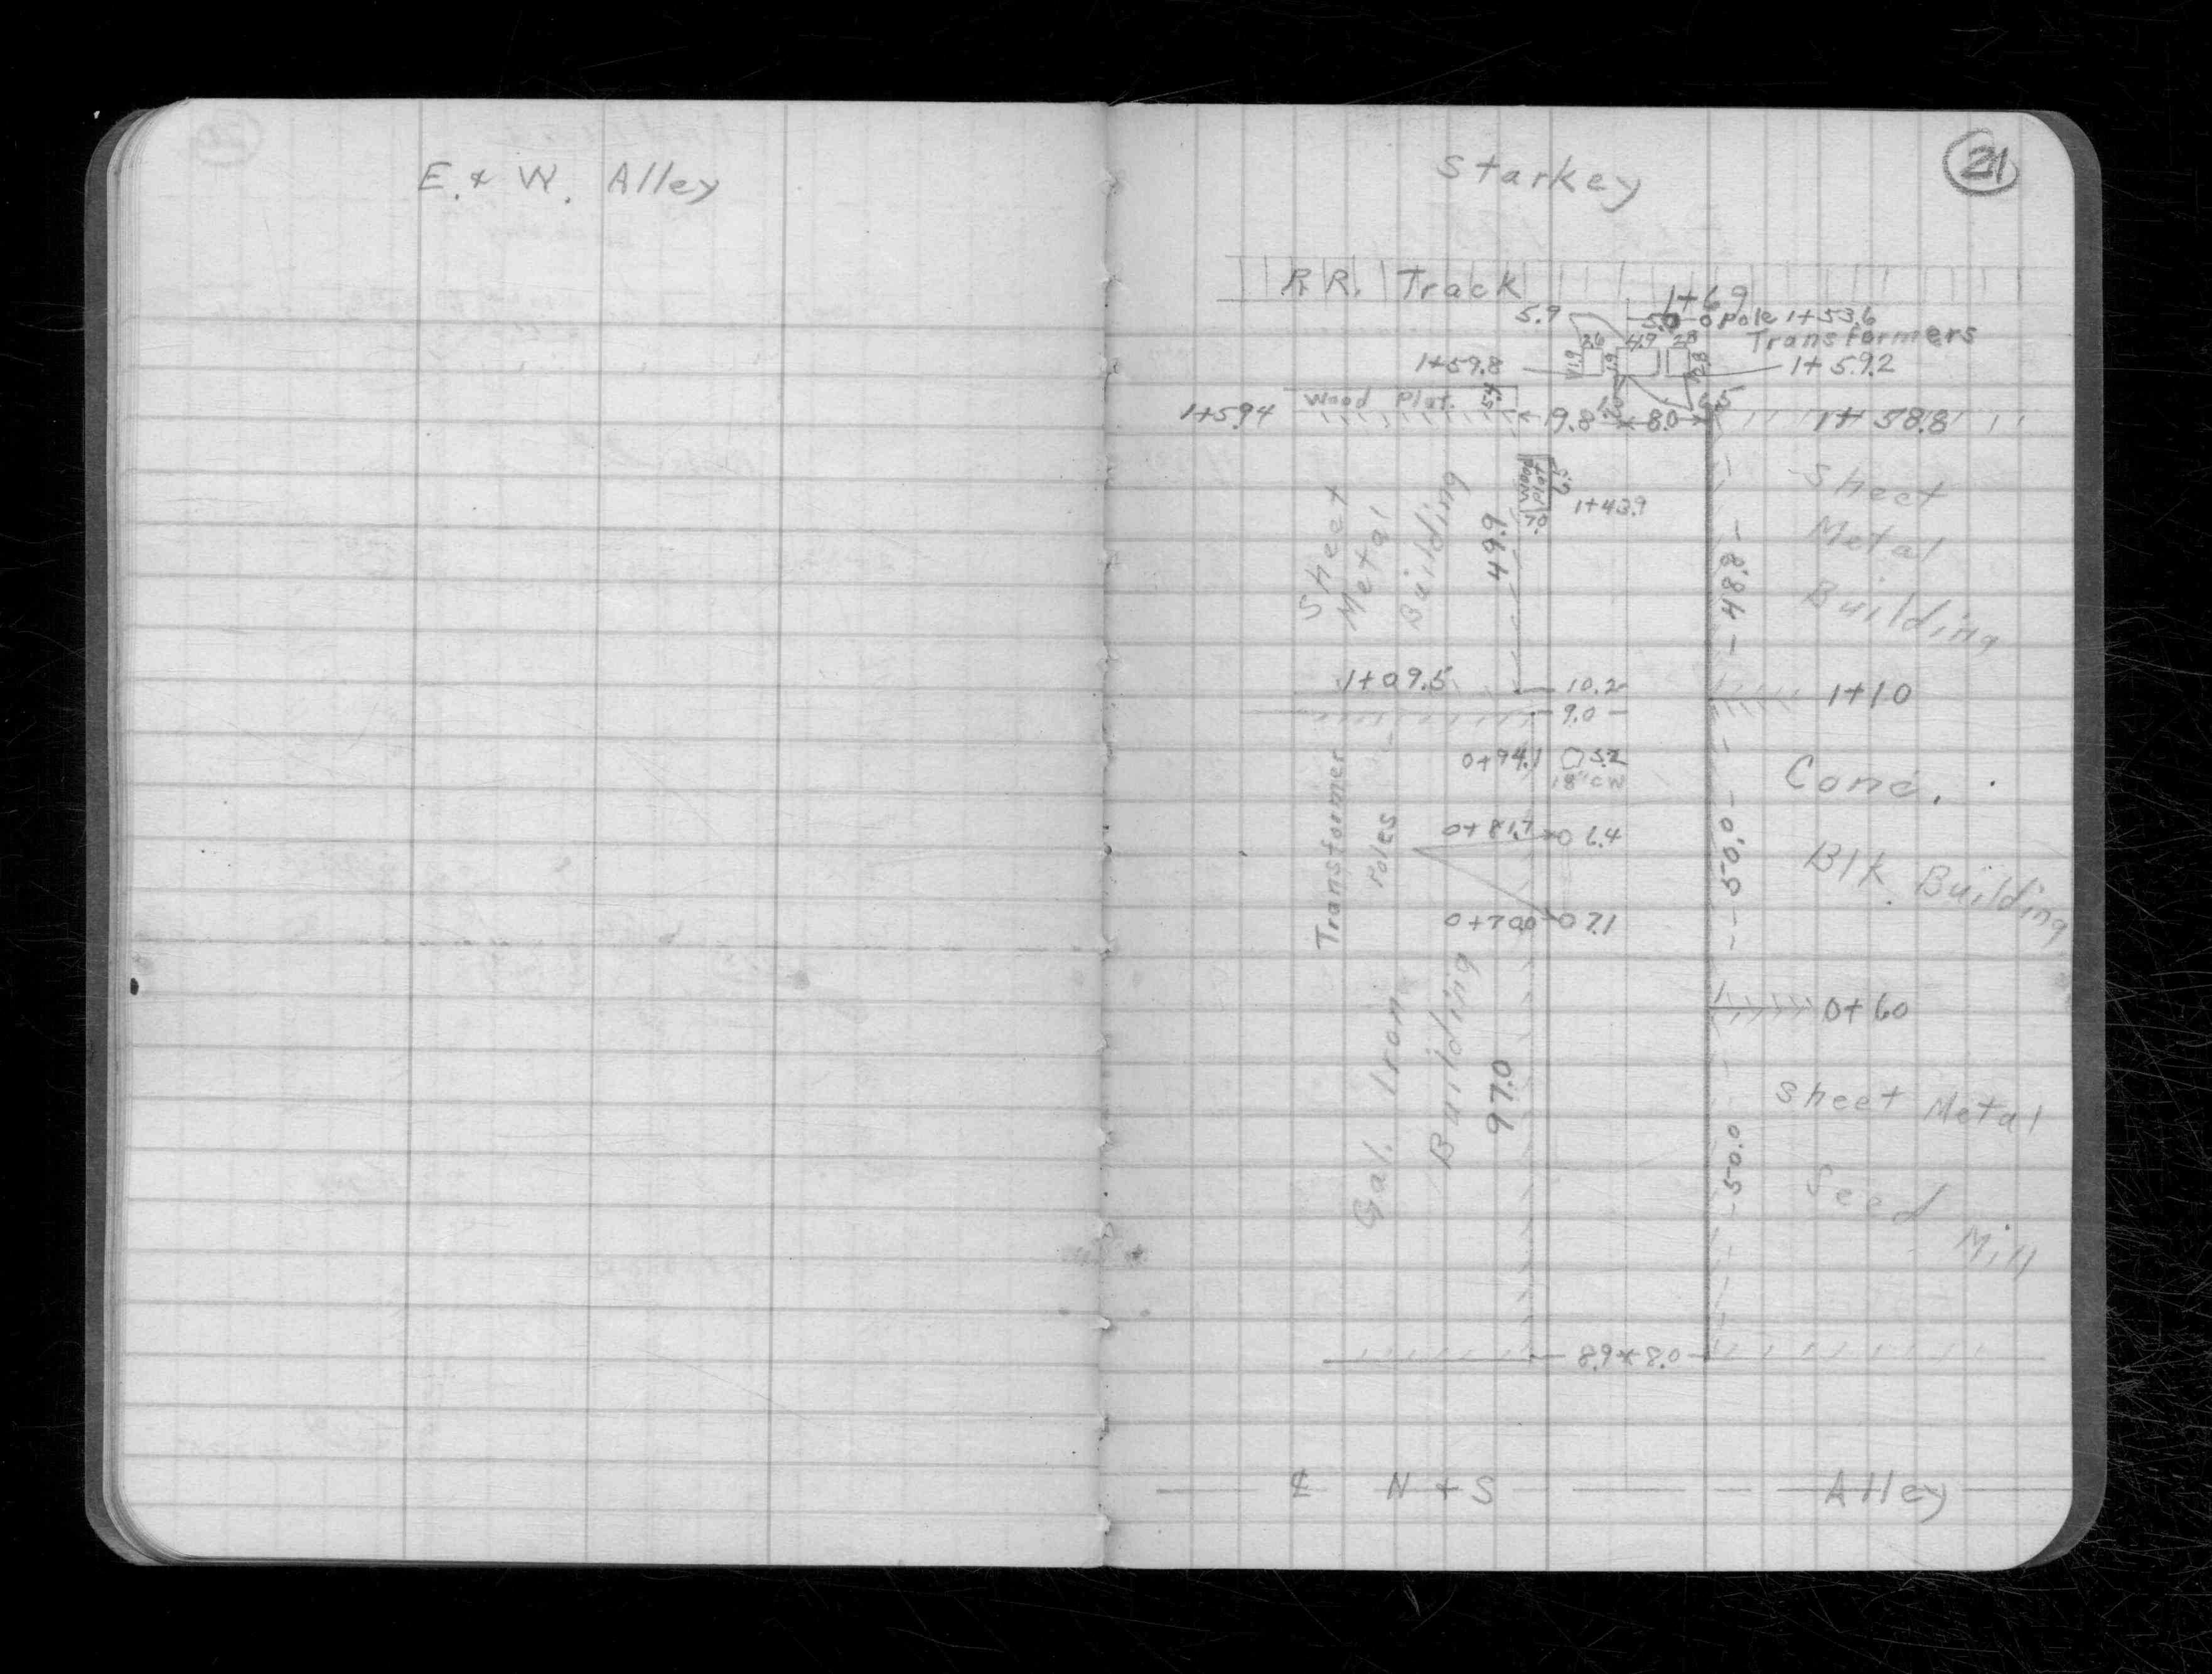 E. & W. Alley
Starkey
21
R.R. Track
1+69
5.9
5.0
Pole 1+53.6
Transformers
2.6
4.9
2.8
1+59.8
1.9
1+59.2
Wood Plat.
5.4
6.5
1+59.4
9.8
8.0
1+58.8
Wood
Plat
7.0
1+43.9
Sheet
Metal
Building
49.9
48.8
Sheet
Metal
Building
1+09.5
10.2
1+10
9.0
0+94.1
5.2
18" CW
Conc.
Blk. Building
50.0
Transformer
Poles
0+81.7
6.4
0+70.0
7.1
0+60
Gal. Iron
Building
97.0
50.0
Sheet Metal
Feed
Mill
8.9 8.0
℄ N + S Alley